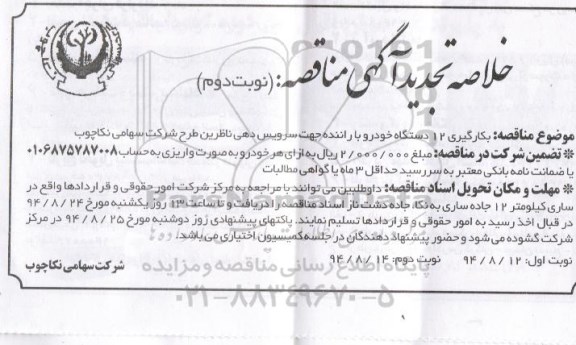 خلاصه تجدید آگهی مناقصه: (نوبت دوم)
موضوع مناقصه: بکارگیری ۱۲ دستگاه خودرو با راننده جهت سرویس دهی ناظرین طرح شرکت سهامی نکاچوب
* تضمین شرکت در مناقصه: مبلغ ۲/۰۰۰/۰۰۰ ریال به ازای هر خودرو به صورت واریزی به حساب ۰۱۰۶۸۷۵۷۸۷۰۰۸
یا ضمانت نامه بانکی معتبر به سررسید حداقل ۳ ماه یا گواهی مطالبات
* مهلت و مکان تحویل اسناد مناقصه: داوطلبین می توانند با مراجعه به مرکز شرکت امور حقوقی و قراردادها واقع در
ساری کیلومتر ۱۲ جاده ساری به نکا، جاده دشت ناز اسناد مناقصه را دریافت و تا ساعت ۱۳ روز یکشنبه مورخ ۹۴/۸/۲۴
در قبال اخذ رسید به امور حقوقی و قراردادها تسلیم نمایند. پاکتهای پیشنهادی روز دوشنبه مورخ ۹۴/۸/۲۵ در مرکز
شرکت گشوده می شود و حضور پیشنهاد دهندگان در جلسه کمیسیون اختیاری می باشد.
نوبت اول: ۹۴/۸/۱۲ نوبت دوم: ۹۴/۸/۱۴
شرکت سهامی نکاچوب
پایگاه اطلاع رسانی مناقصه و مزایده
۰۲۱-۸۸۳۴۹۶۷۰-۵